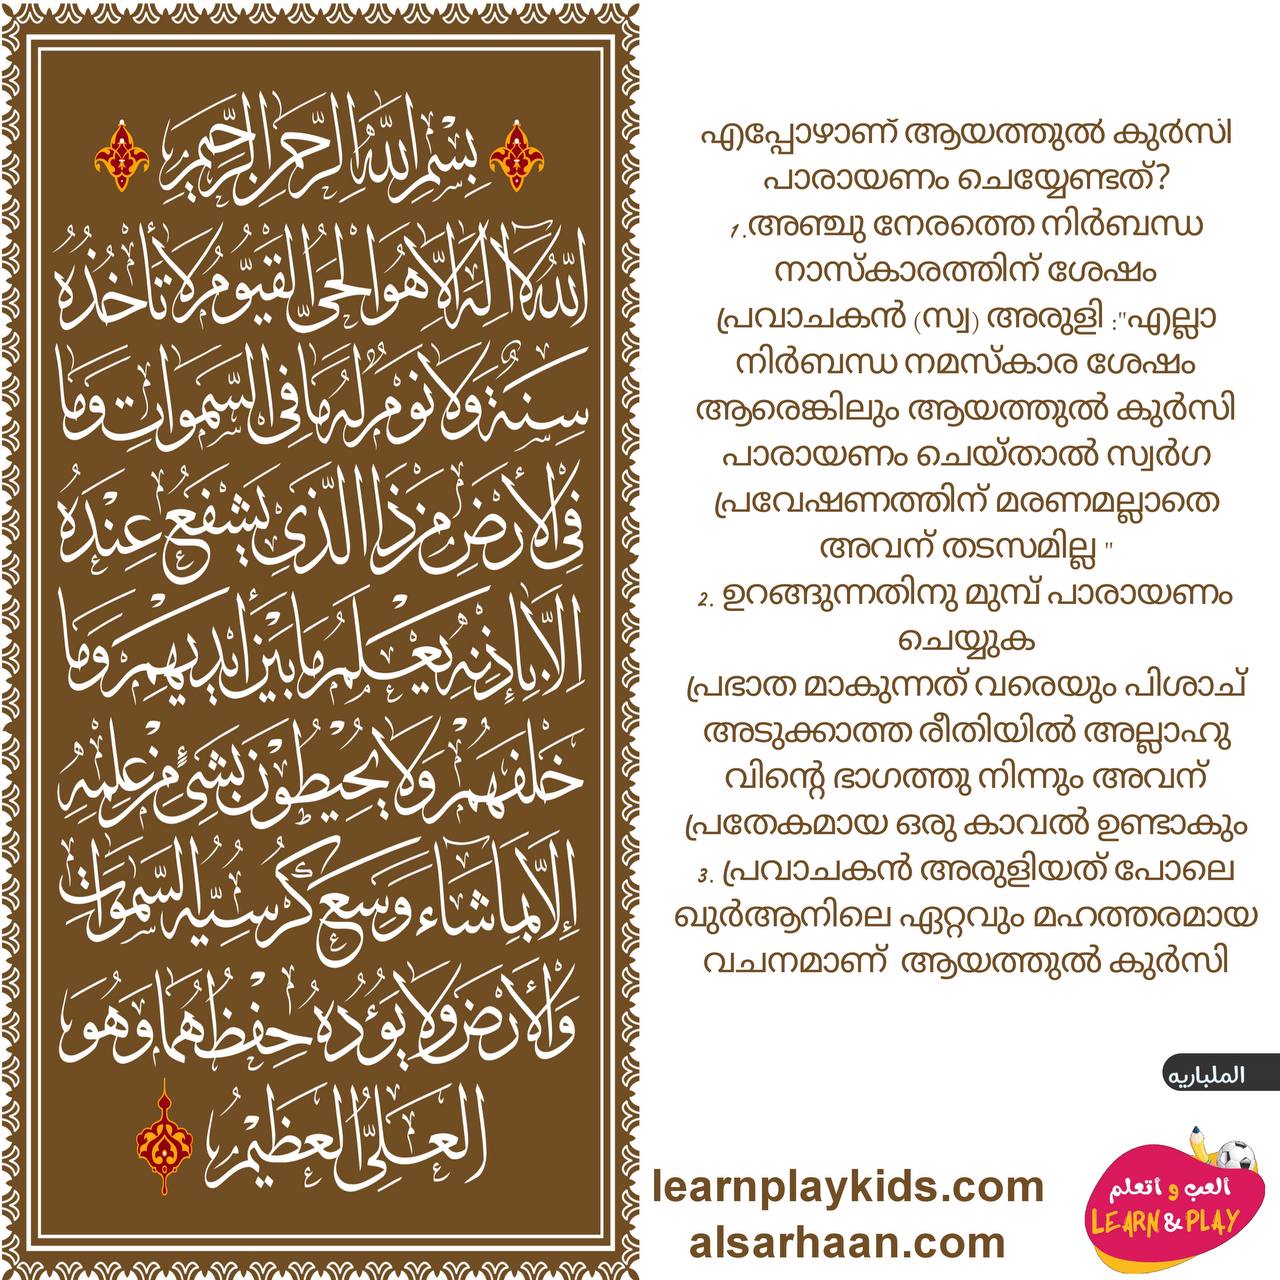 بسم الله الرحمن الرحيم
الله لا اله الا هو الحي القيوم لا تأخذه
سنة ولا نوم له ما في السموات وما
في الأرض من ذا الذي يشفع عنده
الا بإذنه يعلم ما بين ايديهم وما
خلفهم ولا يحيطون بشيء من علمه
إلا بما شاء وسع كرسيه السموات
والأرض ولا يؤده حفظهما وهو
العلي العظيم
എപ്പോഴാണ് ആയത്തുൽ കുർസി
പാരായണം ചെയ്യേണ്ടത്?
1.അഞ്ചു നേരത്തെ നിർബന്ധ
നാസ്കാരത്തിന് ശേഷം
പ്രവാചകൻ (സ്വ) അരുളി :"എല്ലാ
നിർബന്ധ നമസ്കാര ശേഷം
ആരെങ്കിലും ആയത്തുൽ കുർസി
പാരായണം ചെയ്താൽ സ്വർഗ
പ്രവേഷണത്തിന് മരണമല്ലാതെ
അവന് തടസമില്ല "
2. ഉറങ്ങുന്നതിനു മുമ്പ് പാരായണം
ചെയ്യുക
പ്രഭാത മാകുന്നത് വരെയും പിശാച്
അടുക്കാത്ത രീതിയിൽ അല്ലാഹു
വിന്റെ ഭാഗത്തു നിന്നും അവന്
പ്രതേകമായ ഒരു കാവൽ ഉണ്ടാകും
3. പ്രവാചകൻ അരുളിയത് പോലെ
ഖുർആനിലെ ഏറ്റവും മഹത്തരമായ
വചനമാണ് ആയത്തുൽ കുർസി
الملباريه
learnplaykids.com
alsarhaan.com
ألعب و أتعلم
LEARN & PLAY